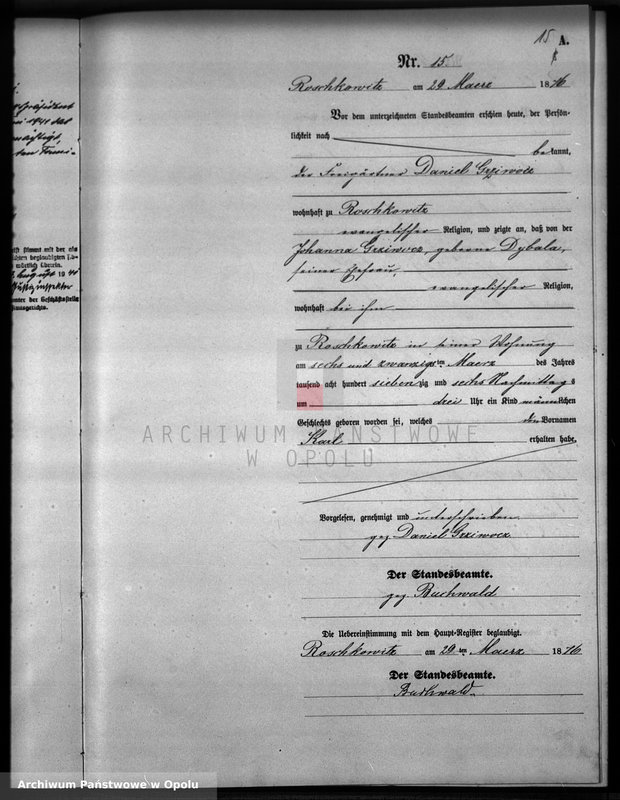 15 A.
Nr. 15
Roschkowitz am 29 Maerz 1876
Vor dem unterzeichneten Standesbeamten erschien heute, der Persön-
lichkeit nach
bekannt,
der Freigärtner Daniel Grziwocz
wohnhaft zu Roschkowitz
evangelischer Religion, und zeigte an, daß von der
Johanna Grziwocz, geborene Dybala,
seiner Ehefrau,
evangelischer Religion,
wohnhaft bei ihm
zu Roschkowitz in seiner Wohnung
am sechs und zwanzigsten Maerz des Jahres
tausend acht hundert siebenzig und sechs Nachmittags
um drei Uhr ein Kind männlichen
Geschlechts geboren worden sei, welches den Vornamen
Karl erhalten habe.
ARCHIWUM PAŃSTWOWE
W OPOLU
Vorgelesen, genehmigt und unterschrieben
gez Daniel Grziwocz
Der Standesbeamte.
gez. Buchwald
Die Uebereinstimmung mit dem Haupt-Register beglaubigt.
Roschkowitz am 29ten Maerz 1876
Der Standesbeamte.
Buchwald.
Archiwum Państwowe w Opolu